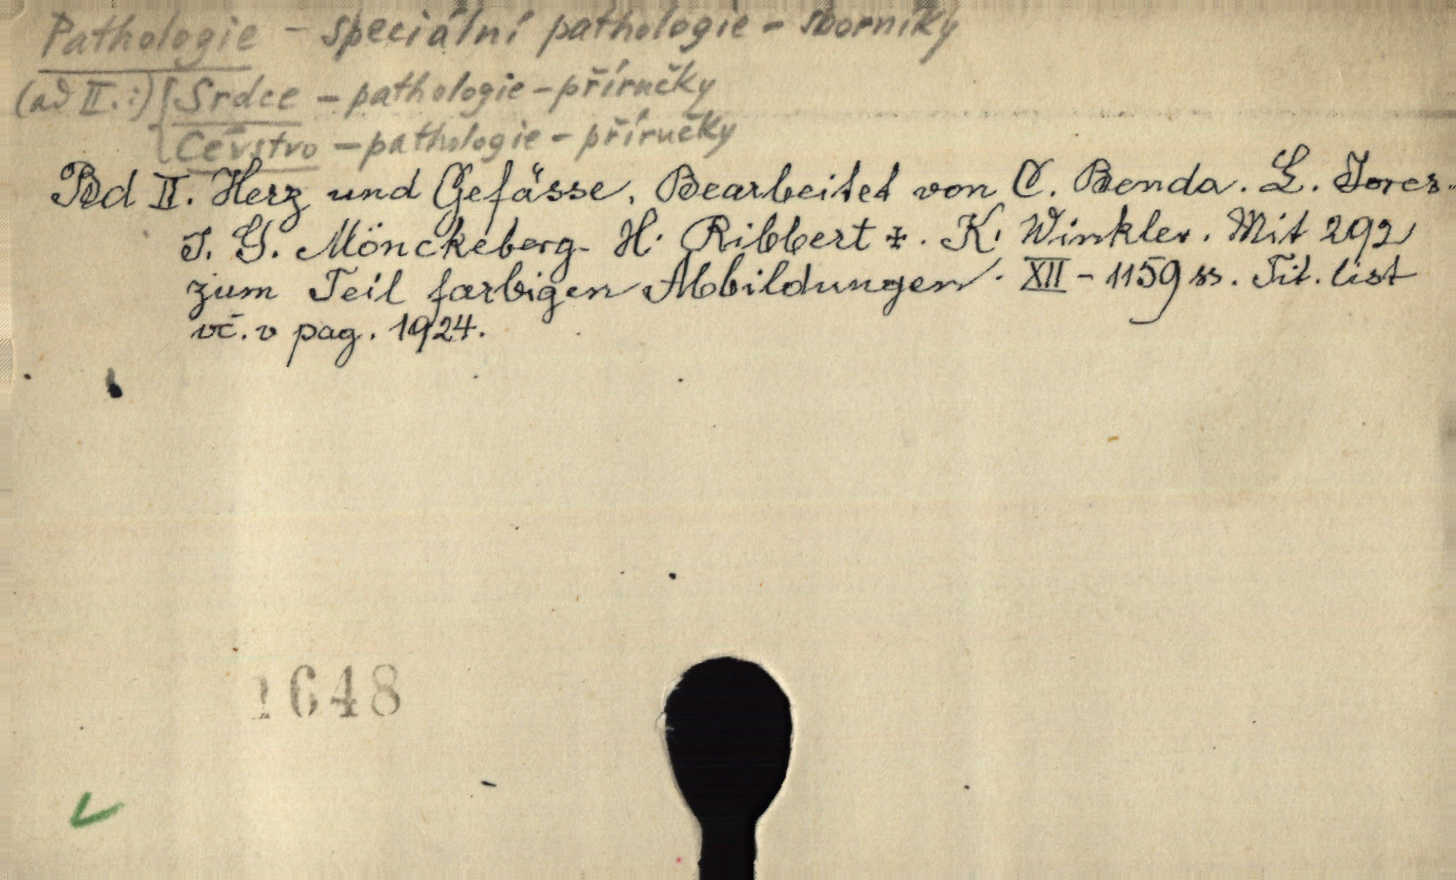 Pathologie – speciální pathologie – sborníky
(ad II.:) [Srdce – pathologie – příručky
Cévstvo – pathologie – příručky
Bd II. Herz und Gefässe. Bearbeitet von C. Benda. L. Jores.
J. G. Mönckeberg. H. Ribbert ‡. K. Winkler. Mit 292
zum Teil farbigen Abbildungen. XII – 1159 ss. Tit. list
vč. v pag. 1924.
1648